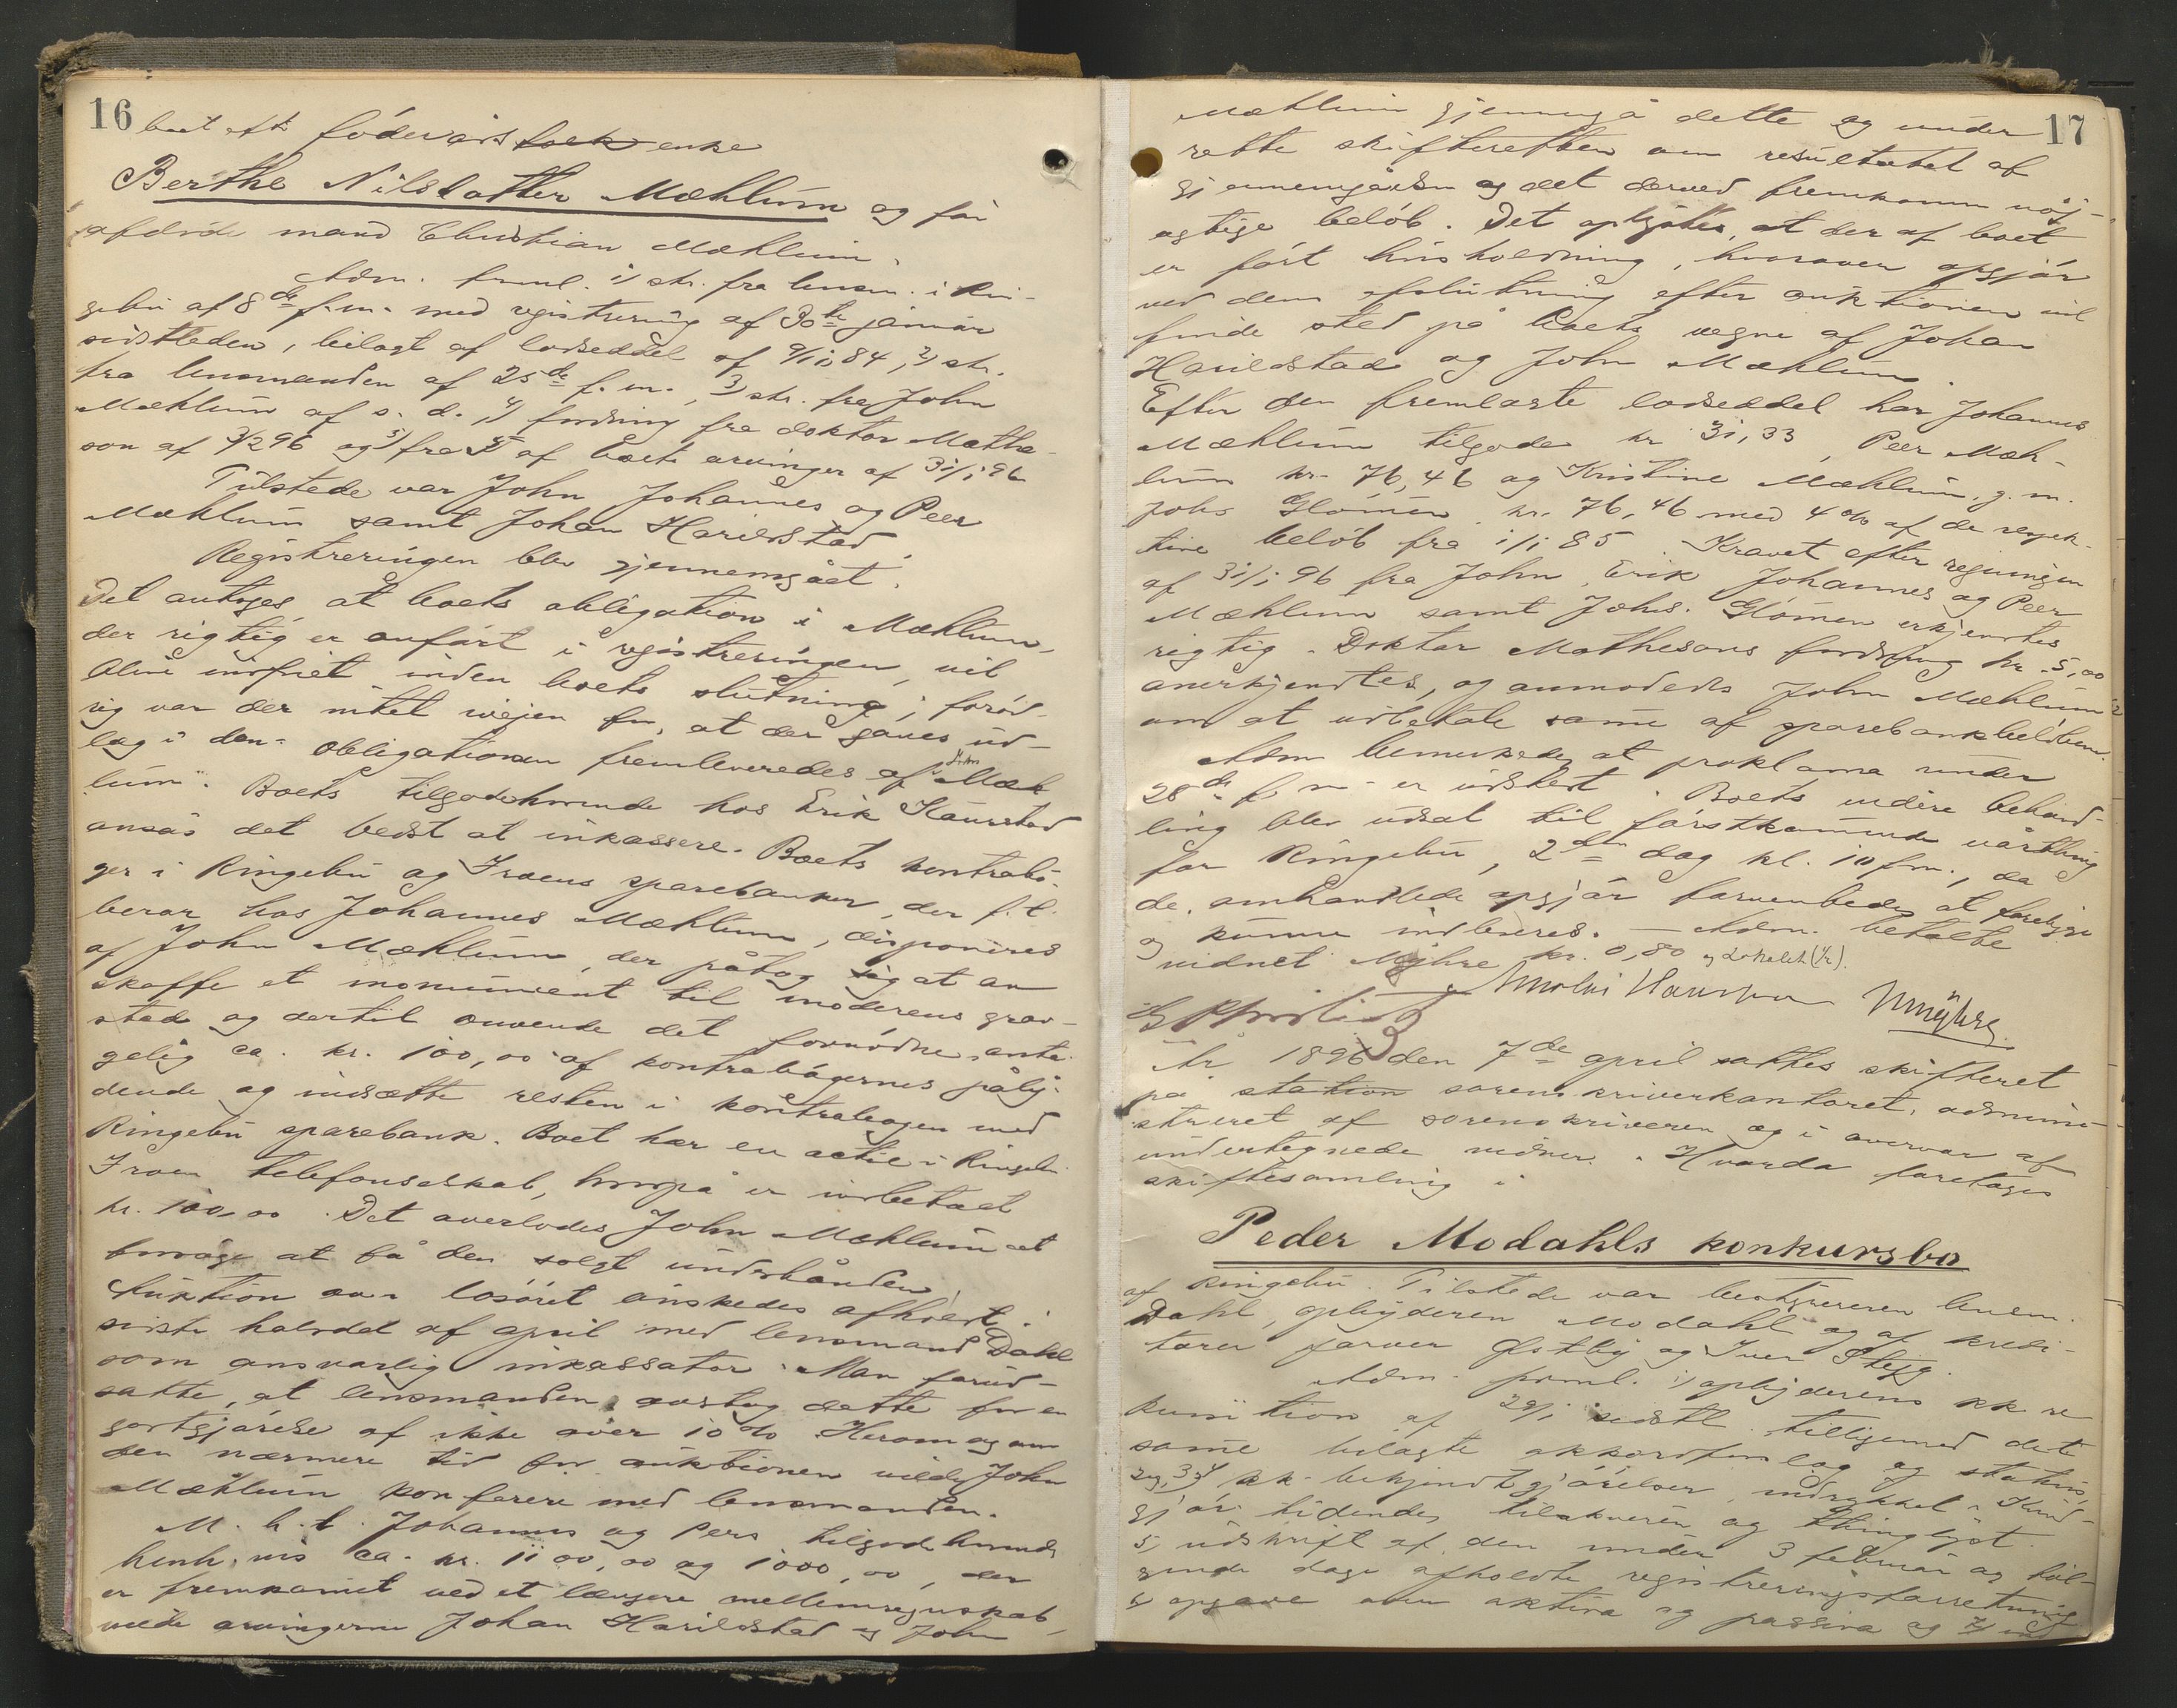 16
boet eft. föderåds folk enke
Berthe Nilsdatter Mæhlum og før
afdøde mand Christian Mæhlum.
Adm. freml. 1) skr. fra lensm. i Rin-
gebu af 8de f.m. med registrering af 30te januar
sidstleden, bilagt af lodseddel af 9/1 84, 2) skr.
fra lensmanden af 25de f.m., 3) skr. fra John
Mæhlum af s. d., 4) fordring fra doktor Mathe-
son af 3/2 96 og 5) fra af boets arvinger af 31/1 96
Tilstede var John Johannes og Peer
Mæhlum samt Johan Harildstad.
Registreringen blev gjennemgået.
Det antoges, at boets obligation i Mæhlum,
der rigtig er anført i registreringen, vil
blive indfriet inden boets slutning; forøv-
rig var der intet ivejen for, at der gaves ud-
læg i den. Obligationen fremleveredes af John Mæh-
lum. Boets tilgodehavende hos Erik Kaurstad
ansås det bedst at inkassere. Boets kontrabø-
ger i Ringebu og Froens sparebanker, der f. t.
beror hos Johannes Mæhlum, disponeres
af John Mæhlum, der påtog sig at an
skaffe et monument til moderens grav-
sted og dertil anvende det fornødne, anta-
gelig ca. kr. 100,00 af kontrabøgernes påly-
dende og indsætte resten i kontrabogen med
Ringebu sparebank. Boet har en actie i Ringebu
Froen telefonselskab, hvorpå er indbetalt
kr. 100,00. Det overlodes John Mæhlum at
forsøge at få den solgt underhånden.
Auktion over løsøret ønskedes afholdt i
sidste halvdel af april med lensmand Dahl
som ansvarlig inkassator. Man forud-
satte, at lensmanden overtog dette for en
godtgjørelse af ikke over 10 %. Herom og om
den nærmere tid for auktionen vilde John
Mæhlum konferere med lensmanden.
M. h. t. Johannes og Pers tilgodehavende
henh.vis ca. kr. 1100,00 og 1000,00, der
er fremkommet ved et længere mellemregnskab,
vilde arvingerne Johan Harildstad og John
17
Mæhlum gjennemgå dette og under
rette skifteretten om resultatet af
gjennemgåelsen og det derved fremkomne nøj-
agtige beløb. Det oplystes, at der af boet
er ført husholdning, hvorover opgjør
ved dens afslutning efter auktionen vil
finde sted på boets vegne af Johan
Harildstad og John Mæhlum.
Efter den fremlagte lodseddel har Johannes
Mæhlum tilgode kr 31,33, Peer Mæh-
lum kr. 76,46 og Kristine Mæhlum, g. m.
Johs Glomen kr. 76,46 med 4 % af de respek-
tive beløb fra 1/1 85. Kravet efter regningen
af 31/1 96 fra John, Erik Johannes og Peer
Mæhlum samt Johs. Glomen erkjendtes
rigtig. Doktor Mathesons fordring kr. 5,00
anerkjendtes, og anmodedes John Mæhlum
om at udbetale samme af sparebankbeløbene.
Adm bemærkede, at proklama under
28de f. m. er udstedt. Boets videre behand-
ling blev udsat til førstkommende vårthing
for Ringebu, 2den dag kl. 10 fm., da
de omhandlede opgjør forventedes at foreligge
og kunne indleveres. — Adm. betalte
vidnet Myhre kr. 0,80 og Lokalet (1/2).
Myhre
År 1896 den 7de april sattes skifteret
på station sorenskriverkontoret, admini-
streret af sorenskriveren og i overvær af
undertegnede vidner. Hvorda foretages
skiftesamling i
Peder Modahls konkursbo
af Ringebu. Tilstede var bestyreren lensm.
Dahl, opbyderen Modahl og af kredi-
torer farver Østby og Iver Stejg.
Adm. freml. 1) opbyderens kk re
kvisition af 29/1 sidstl. tilligemed dets
samme bilagte akkordforslag og status,
2 og 3, 4 kk. bekjendtgjørelser, indrykket i Kund-
gjør. tidende, tilakveren og thinglyst.
5, udskrift af den under 3 februar og føl-
gende dage afholdte registreringsforretning
6 opgave over aktiva og passiva og 7)